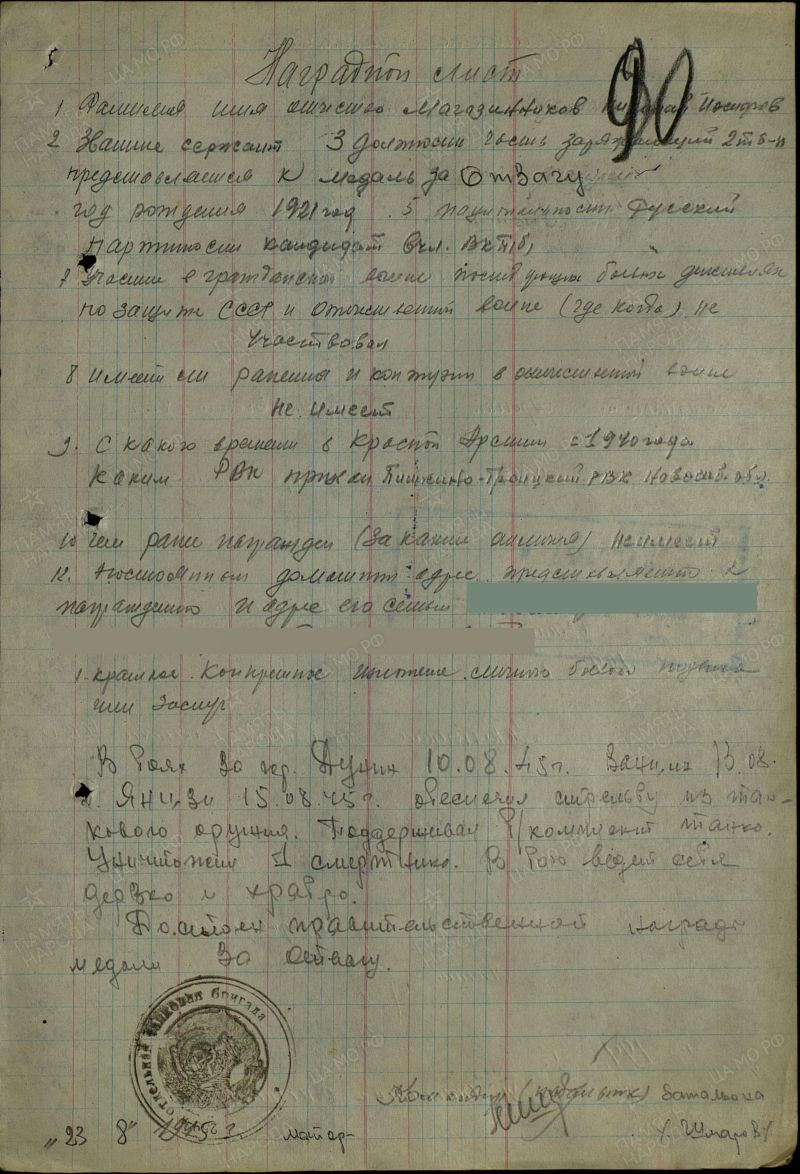 5
90
Наградной лист
1 Фамилия имя отчество Магазинников Николай Иосифов
2 Звание сержант 3 Должность часть заряжающий 2 т б-н
представляется к медаль за Отвагу
год рождения 1921 год . 5 национальность Русский
партийности кандидат в чл. ВКП(б)
7 Участие в гражданской войне последующих боевых действиях
по защите СССР и отечественной войне (где когда) не
участвовал
8 имеет ли ранения и контузии в отечественной войне
не имеет
9. С какого времени в Красной Армии с 1940 года
Каким РВК призван Троицкий РВК Новосиб. обл.
10 чем ранее награжден (за какие отличия) не имеет
12. постоянный домашний адрес представляемого к
награждению и адрес его семьи
краткое конкретное изложение личного боевого подвига
или заслуг
В боях за гор. 10.08.45г. 13.08.
15.08.45г. обеспечил стрельбу из тан-
кового орудия. Поддерживая танка.
Уничтожил 1 смертника. В бою ведет себя
дерзко и храбро.
Достоин правительственной награды
медали За Отвагу.
отдельная танковая бригада
Командир батальона
"23 8" 1945 г майор- / Шмаров /
ПАМЯТЬ НАРОДА
ЦА МО РФ